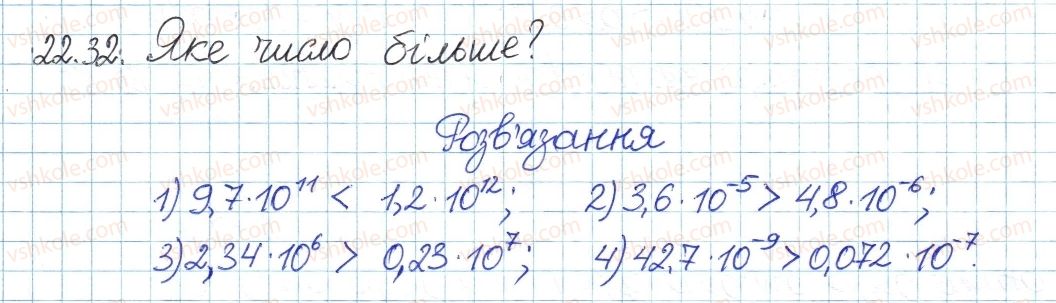 22.32. Яке число більше?
Розв'язання
1) 9,7·10¹¹ < 1,2·10¹²; 2) 3,6·10⁻⁵ > 4,8·10⁻⁶;
3) 2,34·10⁶ > 0,23·10⁷; 4) 42,7·10⁻⁹ > 0,072·10⁻⁷.
vshkole.com